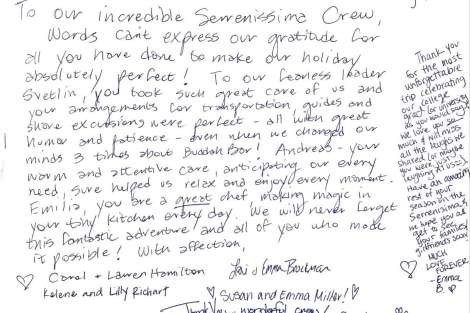 To our incredible Serrenissima Crew,
Words can't express our gratitude for
all you have done to make our holiday
absolutely perfect! To our fearless leader
Svetlin, you took such great care of us and
your arrangements for transportation, guides and
shore excursions were perfect - all with great
humor and patience - even when we changed our
minds 3 times about Buddah Bar! Andreas - your
warm and attentive care, anticipating our every
need, sure helped us relax and enjoy every moment.
Emilia, you are a great chef making magic in
your tiny kitchen every day. We will never forget
this fantastic adventure and all of you who made
it possible! With affection,
Carol + Lauren Hamilton
Kelene and Lilly Richart
& Emma Brockman
Susan and Emma Miller!
Thank You wonderful crew!
Thank you
for the most
unforgettable
trip celebrating
our college
grad (or university
as you would say)
We love you so
much & will miss
all the laughs we
shared (or maybe
you were just
laughing at us).
Have an amazing
rest of your
season on the
Serrenissima,
we hope you all
get to see
your families/
girlfriends soon
MUCH
LOVE
FOREVER
- Emma
B.